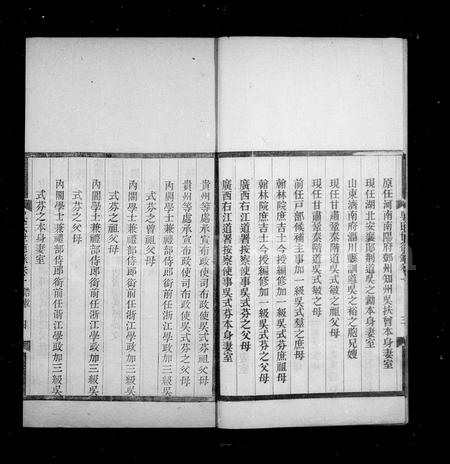 原任河南南陽府鄧州知州吳扶曾本身妻室
現任湖北安襄鄖荆道吳之勷本身妻室
山東濟南府淄川縣訓道吳之裕之胞兄嫂
現任甘肅鞏秦階道吳式敏之祖父母
現任甘肅鞏秦階道吳式敏之母
前任戶部候補主事加一級吳式羣之庶母
翰林院庶吉士今授編修加一級吳式芬庶祖母
翰林院庶吉士今授編修加一級吳式芬之父母
廣西右江道署按察使事吳式芬之父母
廣西右江道署按察使事吳式芬本身妻室
貴州等處承宣布政使司布政使吳式芬祖父母
貴州等處承宣布政使司布政使吳式芬父母
內閣學士兼禮部侍郎銜前任浙江學政加三級吳
式芬之曾祖父母
內閣學士兼禮部侍郎銜前任浙江學政加三級吳
式芬之祖父母
內閣學士兼禮部侍郎銜前任浙江學政加三級吳
式芬之父母
內閣學士兼禮部侍郎銜前任浙江學政加三級吳
式芬之本身妻室